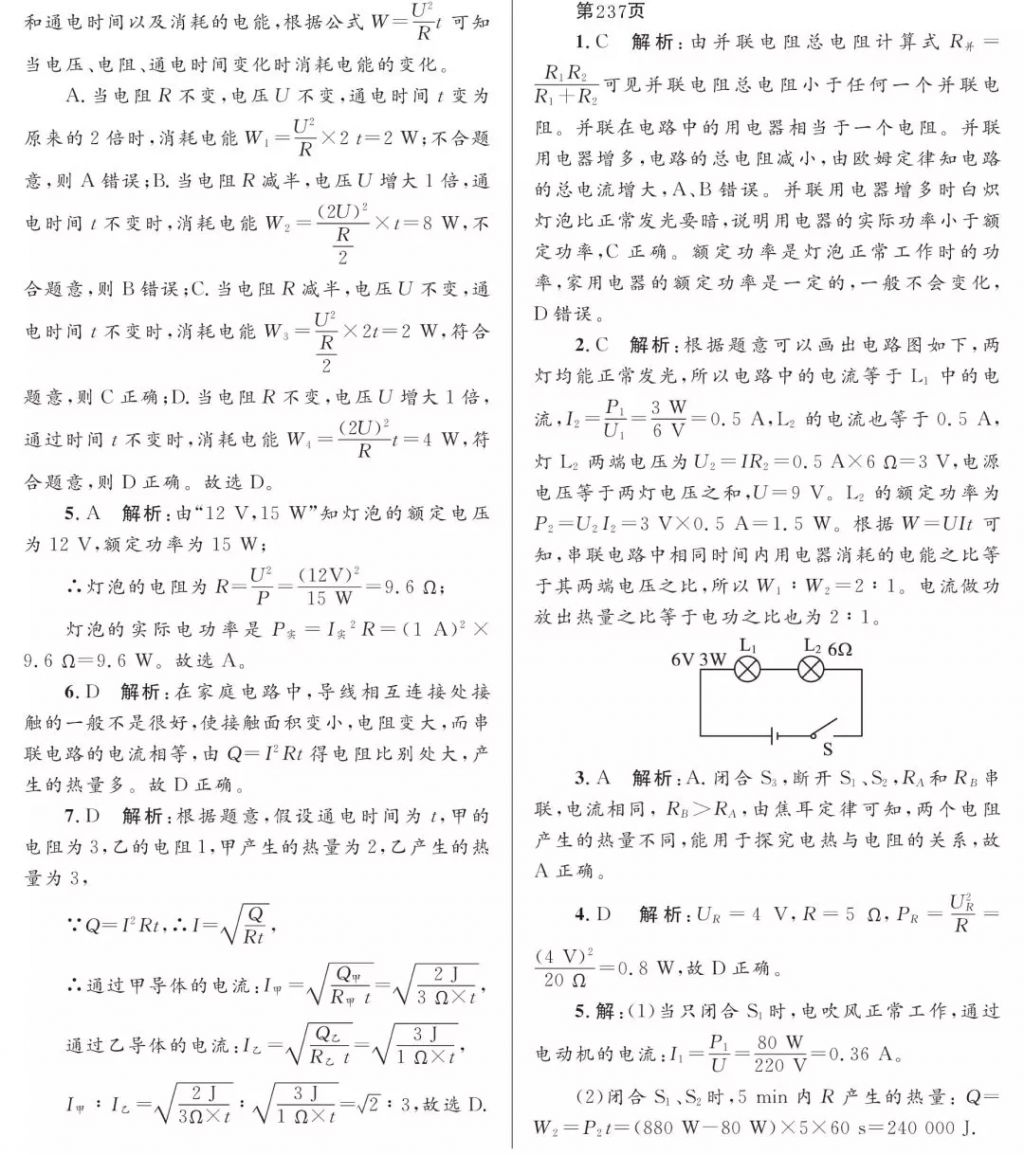 和通电时间以及消耗的电能,根据公式 W=U²/R t 可知
当电压、电阻、通电时间变化时消耗电能的变化。
A. 当电阻 R 不变,电压 U 不变,通电时间 t 变为
原来的 2 倍时,消耗电能 W₁=U²/R×2 t=2 W;不合题
意,则 A 错误;B. 当电阻 R 减半,电压 U 增大 1 倍,通
电时间 t 不变时,消耗电能 W₂=(2U)²/(R/2)×t=8 W,不
合题意,则 B 错误;C. 当电阻 R 减半,电压 U 不变,通
电时间 t 不变时,消耗电能 W₃=U²/(R/2)×2t=2 W,符合
题意,则 C 正确;D. 当电阻 R 不变,电压 U 增大 1 倍,
通过时间 t 不变时,消耗电能 W₄=(2U)²/R t=4 W,符
合题意,则 D 正确。故选 D。
5. A 解析:由“12 V,15 W”知灯泡的额定电压
为 12 V,额定功率为 15 W;
∴灯泡的电阻为 R=U²/P=(12V)²/15 W=9.6 Ω;
灯泡的实际电功率是 P实=I实²R=(1 A)²×
9.6 Ω=9.6 W。故选 A。
6. D 解析:在家庭电路中,导线相互连接处接
触的一般不是很好,使接触面积变小,电阻变大,而串
联电路的电流相等,由 Q=I²Rt 得电阻比别处大,产
生的热量多。故 D 正确。
7. D 解析:根据题意,假设通电时间为 t,甲的
电阻为 3,乙的电阻1,甲产生的热量为 2,乙产生的热
量为 3,
∵Q=I²Rt,∴I=√(Q/Rt),
∴通过甲导体的电流:I甲=√(Q甲/R甲 t)=√(2 J/3 Ω×t),
通过乙导体的电流:I乙=√(Q乙/R乙 t)=√(3 J/1 Ω×t),
I甲∶I乙=√(2 J/3Ω×t)∶√(3 J/1 Ω×t)=√2∶3,故选 D.
第237页
1. C 解析:由并联电阻总电阻计算式 R并=
R₁R₂/(R₁+R₂)可见并联电阻总电阻小于任何一个并联电
阻。并联在电路中的用电器相当于一个电阻。并联
用电器增多,电路的总电阻减小,由欧姆定律知电路
的总电流增大,A、B 错误。并联用电器增多时白炽
灯泡比正常发光要暗,说明用电器的实际功率小于额
定功率,C 正确。额定功率是灯泡正常工作时的功
率,家用电器的额定功率是一定的,一般不会变化,
D 错误。
2. C 解析:根据题意可以画出电路图如下,两
灯均能正常发光,所以电路中的电流等于 L₁ 中的电
流,I₂=P₁/U₁=3 W/6 V=0.5 A,L₂ 的电流也等于 0.5 A,
灯 L₂ 两端电压为 U₂=IR₂=0.5 A×6 Ω=3 V,电源
电压等于两灯电压之和,U=9 V。L₂ 的额定功率为
P₂=U₂I₂=3 V×0.5 A=1.5 W。根据 W=UIt 可
知,串联电路中相同时间内用电器消耗的电能之比等
于其两端电压之比,所以 W₁∶W₂=2∶1。电流做功
放出热量之比等于电功之比也为 2∶1。
6V 3W L₁ L₂ 6Ω
S
3. A 解析:A. 闭合 S₃,断开 S₁、S₂,R_A 和 R_B 串
联,电流相同,R_B>R_A,由焦耳定律可知,两个电阻
产生的热量不同,能用于探究电热与电阻的关系,故
A 正确。
4. D 解析:U_R=4 V,R=5 Ω,P_R=U_R²/R=
(4 V)²/20 Ω=0.8 W,故 D 正确。
5. 解:(1)当只闭合 S₁ 时,电吹风正常工作,通过
电动机的电流:I₁=P₁/U=80 W/220 V=0.36 A。
(2)闭合 S₁、S₂ 时,5 min 内 R 产生的热量:Q=
W₂=P₂t=(880 W-80 W)×5×60 s=240 000 J.